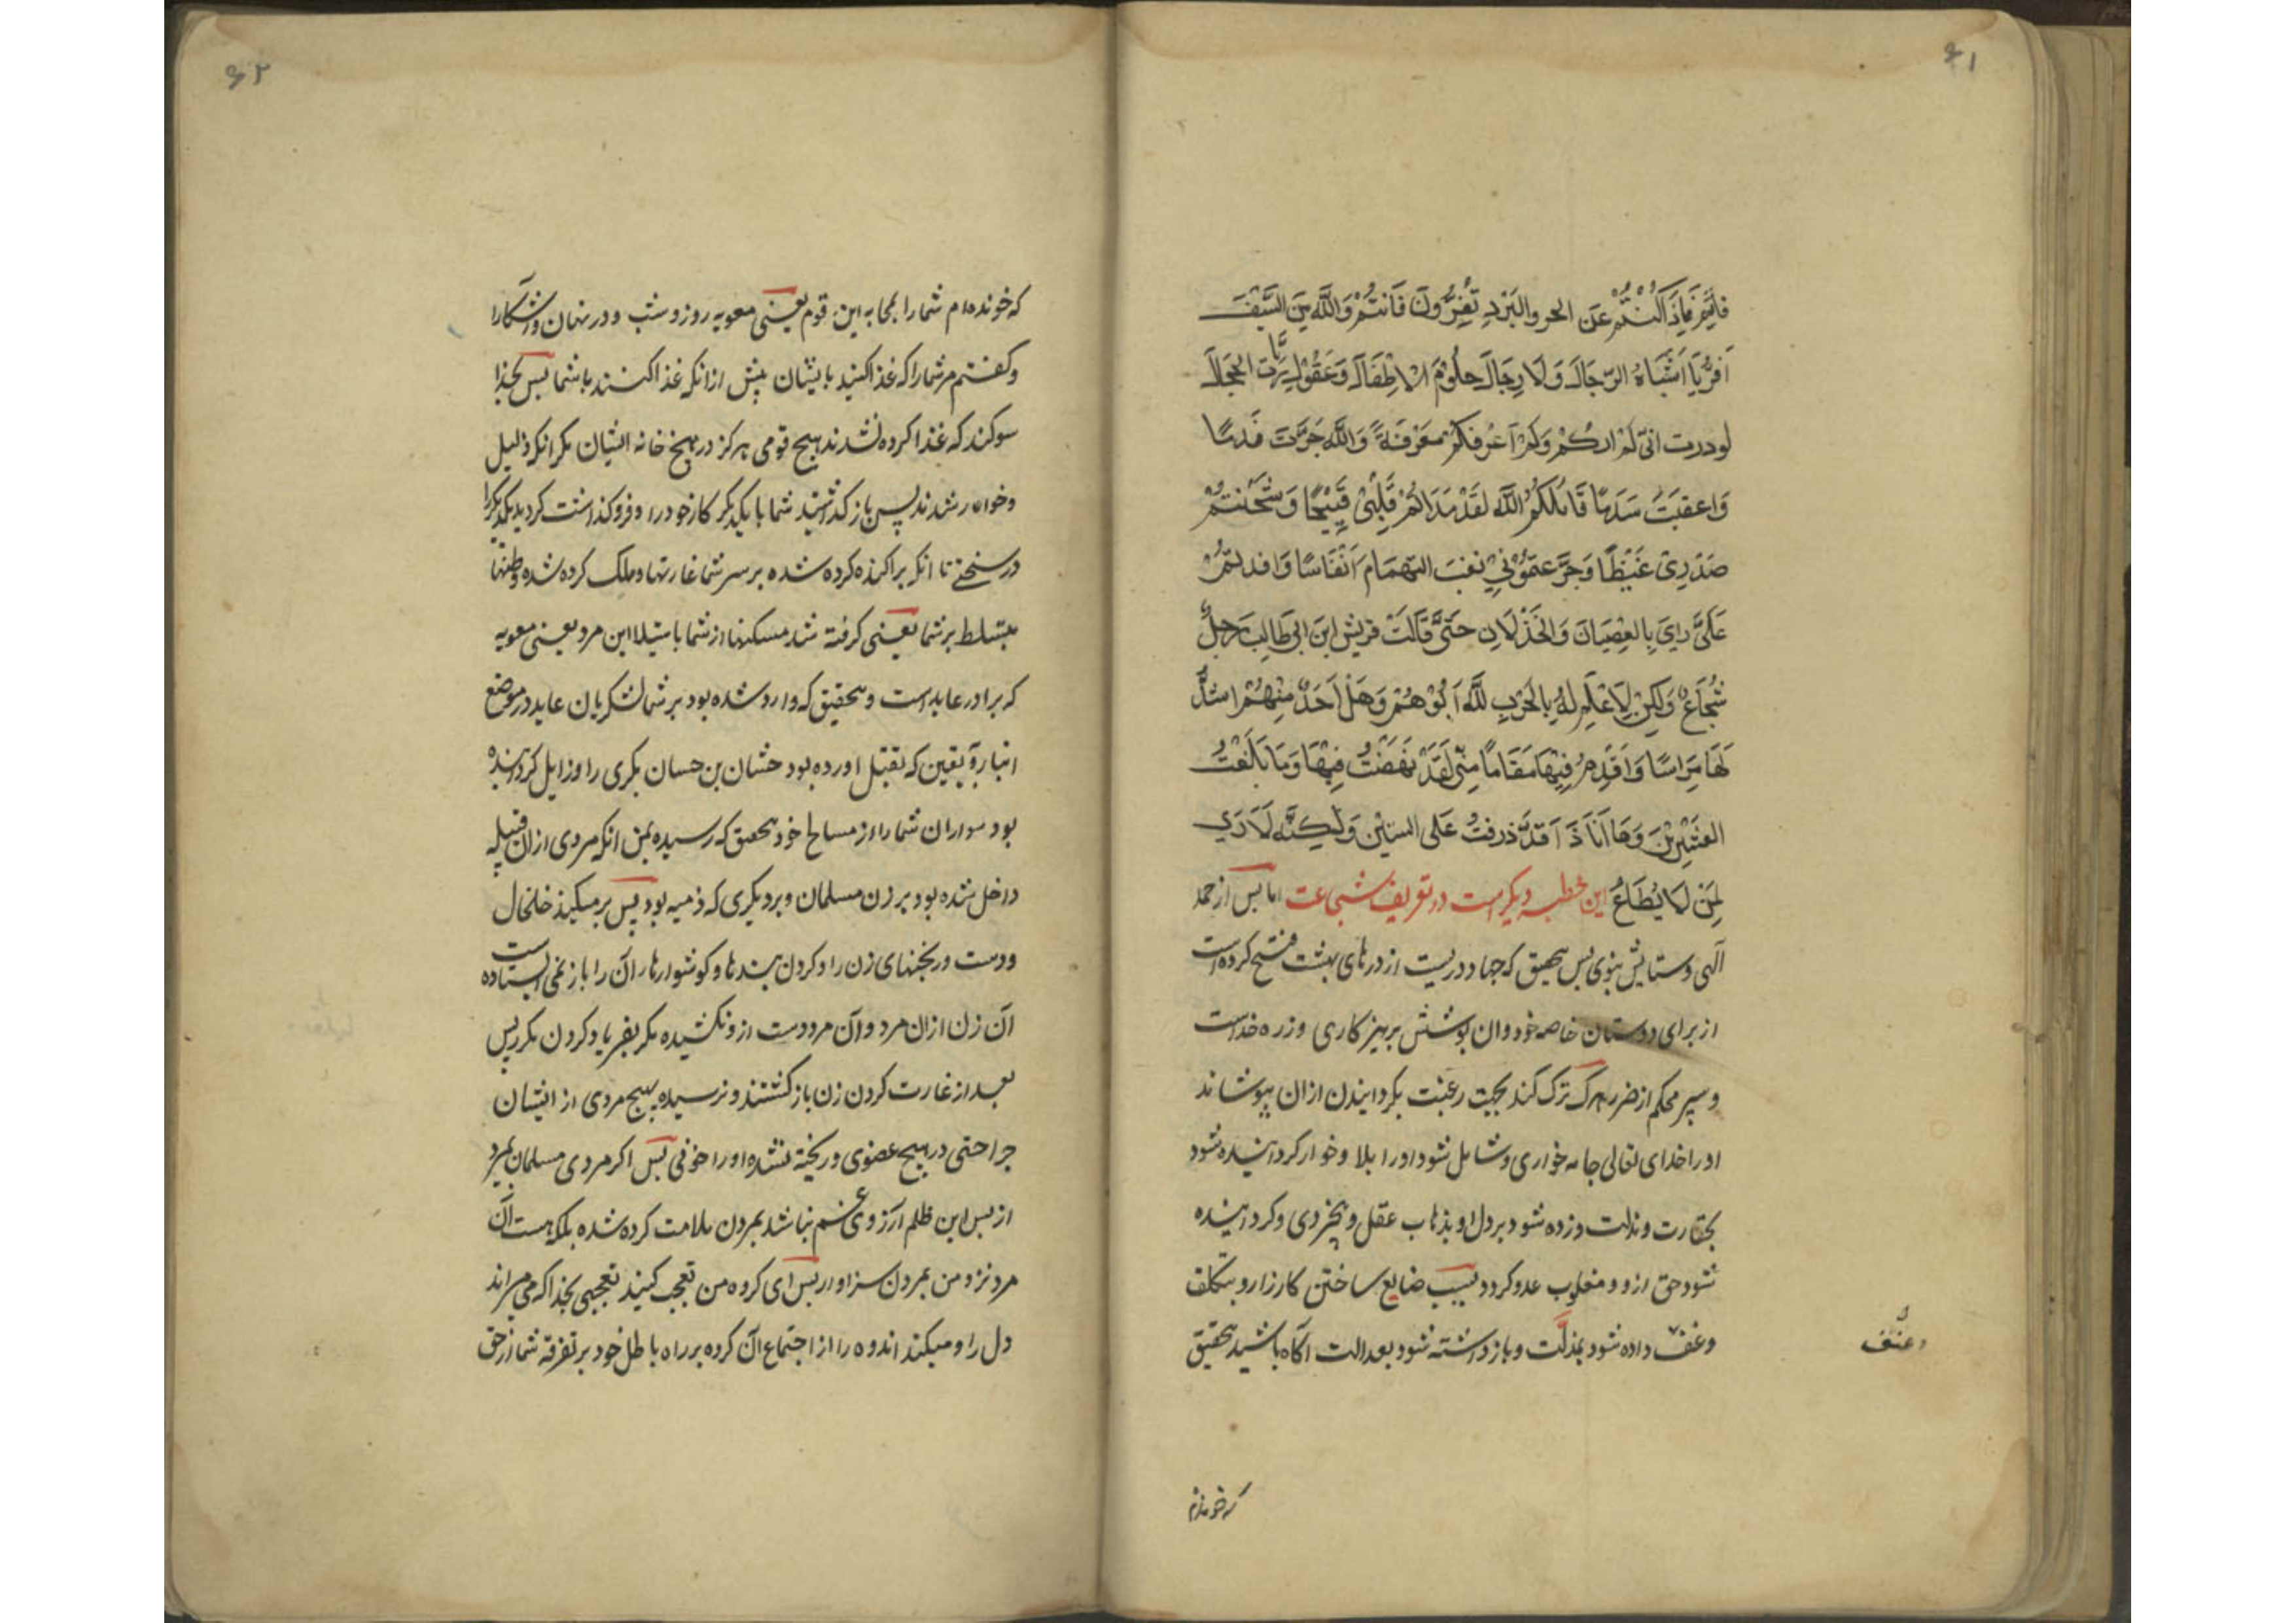 ۶۱
فانتم فاذا كنتم عن الحر والبرد تفرون فانتم والله من السيف
افر يا اشباه الرجال ولا رجال حلوم الاطفال وعقول ربات الحجال
لوددت انى لم اركم ولم اعرفكم معرفة والله جرت ندما
واعقبت سدما قاتلكم الله لقد ملاتم قلبى قيحا وشحنتم
صدرى غيظا وجرعتمونى نغب التهمام انفاسا وافسدتم
على رايى بالعصيان والخذلان حتى قالت قريش ابن ابى طالب رجل
شجاع ولكن لا علم له بالحرب لله ابوهم وهل احد منهم اشد
لها مراسا واقدم فيها مقاما منى لقد نهضت فيها وما بلغت
العشرين وها انا ذا قد ذرفت على الستين ولكنه لا راى
لمن لا يطاع این خطبه دیکر است در تعریف شجاعت اما بس از حمد
آلهی وستایش نبوی بس بتحقیق که جهاد دریست از درهای بهشت فتح کرده است
از برای دوستان خاصه خود وان پوشش برهیزکاری وزره خداست
وسپر محکم از ضرر هرک ترک کند بجهت رغبت بکردانیدن ازان بپوشاند
اورا خدای تعالی جامه خواری وشامل شود اورا بلا وخوار کردانیده شود
بحقارت ومذلت وزده شود بر دل او بذهاب عقل وبیخردی وکردانیده
شود حق ازو ومغلوب عدو کردد بسبب ضایع ساختن کارزار وبتکلف
وعنف داده شود بمذلت وبازداشته شود بعدالت آکاه باشید بتحقیق
وعنف
که خوندم
۶۲
که خونده ام شما را بمحاربه این قوم یعنی معویه روز وشب ودر نهان واشکارا
وکفتم مر شما را که غذا کنید بایشان پیش ازانکه غذا کنند باشما پس بخذا
سوکند که غذا کرده نشدند هیچ قومی هرکز در هیچ خانه ایشان مکر انکه ذلیل
وخوار شدند پس باز کذاشتید شما با یکدیکر کار خود را وفرو کذاشت کردید یکدیکر را
در سختی تا انکه براکنده کرده شده بر سر شما غارتها وملک کرده شده وطنها
بتسلط بر شما یعنی کرفته شد مسکنها از شما باستیلا این مرد یعنی معویه
که برادر عابد است وبتحقیق که وارد شده بود بر شما لشکریان عابد در موضع
انبار ویقین که بقتل اورده بود حسان بن حسان بکری را وزایل کردانیده
بود سواران شما را از مسالح خود بتحقیق که رسیده بمن انکه مردی ازان قبیله
داخل شده بود بر زن مسلمان وبر دیکری که ذمیه بود پس بر میکیند خلخال
ودست وریخنهای زن را وکردن بندها وکوشوارهاران را باز نمی ایستاده است
آن زن ازان مرد وآن مرد دست ازو نکشیده مکر بفریاد کردن مکر پس
بعد از غارت کردن زن باز کشتند ونرسیده بهیچ مردی از ایشان
جراحتی در هیچ عضوی وریخته نشده اورا خونی پس اکر مردی مسلمان بمیرد
از بس این ظلم ارزوی غم نباشد بمردن ملامت کرده شده بلکه هست آن
مرد نزد من بمردن سزاوار پس ای کروه من تعجب کنید تعجبی بخذا که می میراند
دل را ومیکند اندوه را از اجتماع آن کروه بر راه باطل خود بر تفرقه شما از حق